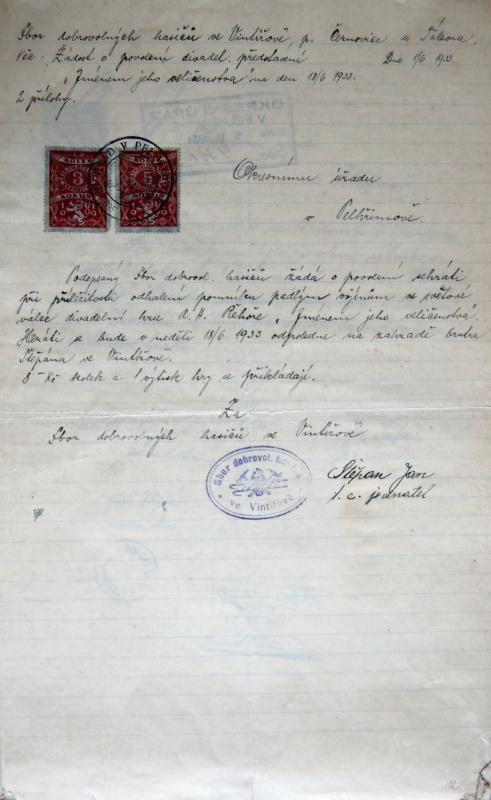 Sbor dobrovolných hasičů ve Vintířově, p. Černovice u Tábora.
Věc: Žádost o povolení divadel. představení Dne 1/6 1933.
„Jménem jeho veličenstva" na den 18/6 1933.
2 přílohy.
OKRESNÍ ÚŘAD
V PE
KOLEK
3
KORUNY
KOLEK
5
KORUN
Okresnímu úřadu
v Pelhřimově.
Podepsaný Sbor dobrovol. hasičů žádá o povolení sehráti
při příležitosti odhalení pomníku padlým vojínům ve světové
válce divadelní hru R. H. Řehoře „Jménem jeho veličenstva"
Hráti se bude v neděli 18/6 1933 odpoledne na zahradě bratra
Štěpána ve Vintířově.
8 Kč kolek a 1 výtisk hry se přikládají.
Za
Sbor dobrovolných hasičů ve Vintířově
Sbor dobrovol. hasičů
ve Vintířově
Štěpan Jan
t. č. jednatel